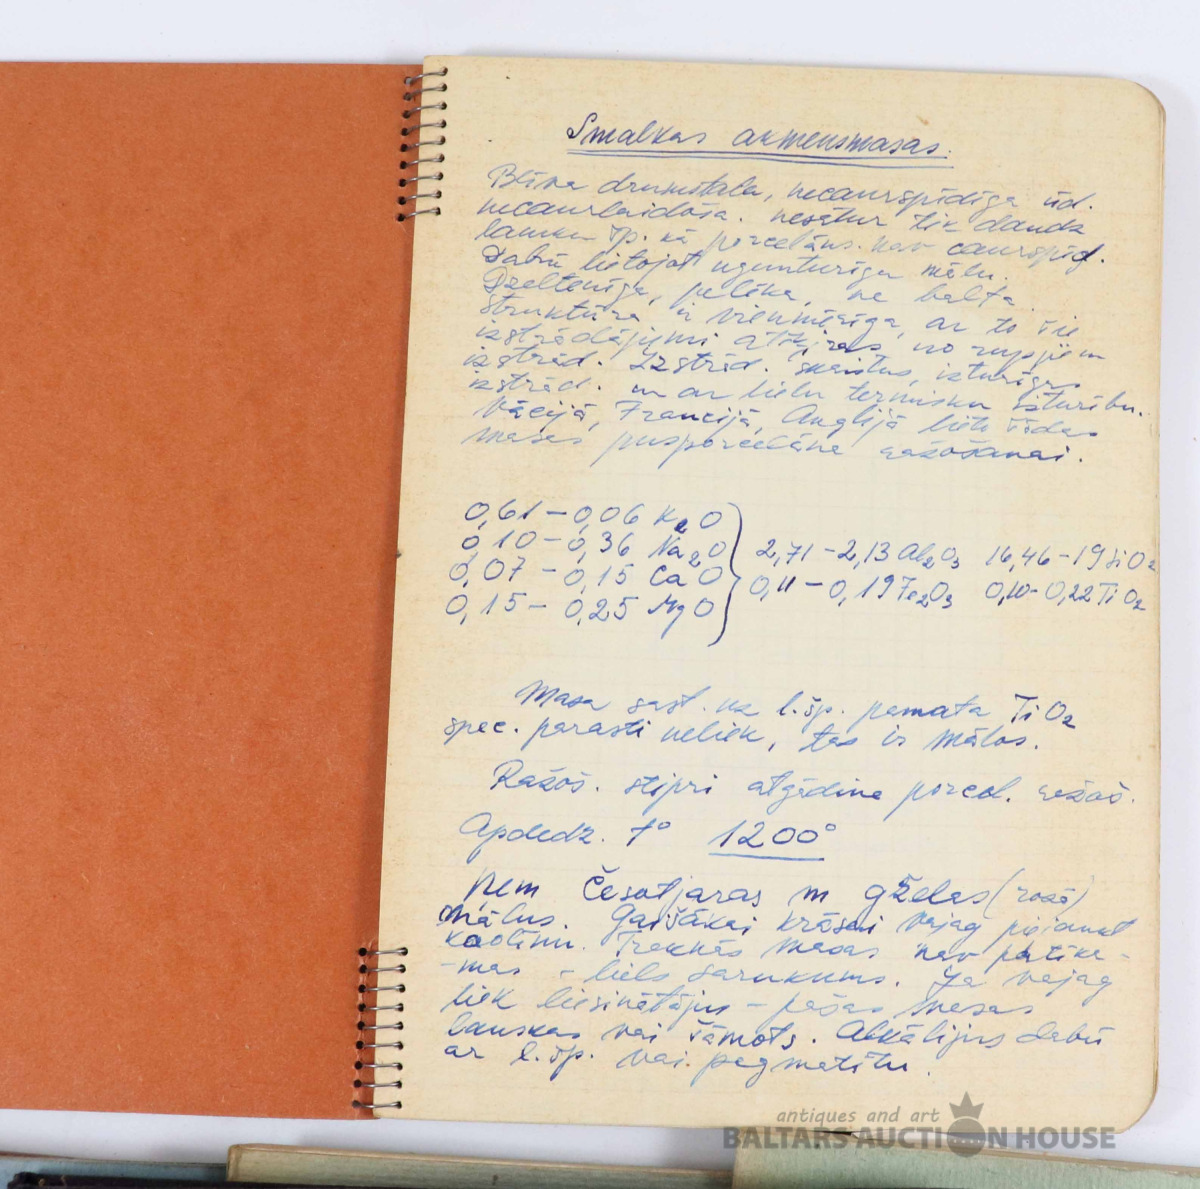 Smalkas akmensmasas.
Blīva drumstala, necaurspīdīga ūd.
necaurlaidoša. nesatur tik daudz
lauku šp. kā porcelāns. nav caurspīd.
Dabū lietojot ugunturīgu mālu.
Dzeltenīga, pelēka, ne balta.
Struktūra ir vienmērīga, ar to šie
izstrādājumi atšķiras no rupjiem
izstrād. Izstrād. skaistus, izturīgus
izstrād. un ar lielu termisku izturību.
Vācijā, Francijā, Anglijā lieto šādas
masas pusporcelāna ražošanai.
0,61 – 0,06 K₂O
0,10 – 0,36 Na₂O
0,07 – 0,15 CaO
0,15 – 0,25 MgO
2,71 – 2,13 Al₂O₃ 16,46 – 19 SiO₂
0,11 – 0,19 Fe₂O₃ 0,10 – 0,22 TiO₂
Masa sast. uz l.šp. pamata TiO₂
spec. parasti neliek, tas ir mālos.
Ražoš. stipri atgādina porcel. ražoš.
Apdedz. t° 1200°
Ņem Česotjaras un gželas (rožā)
mālus. Gaišākai krāsai vajag pievienot
kaolīnu. Treknās masas nav patīka-
-mas - liels sarukums. Ja vajag
liek liesinātājus – pašas masas
lauskas vai šamots. Alkālijus dabū
ar l.šp. vai pegmatītu.
antiques and art
BALTARS AUCTION HOUSE